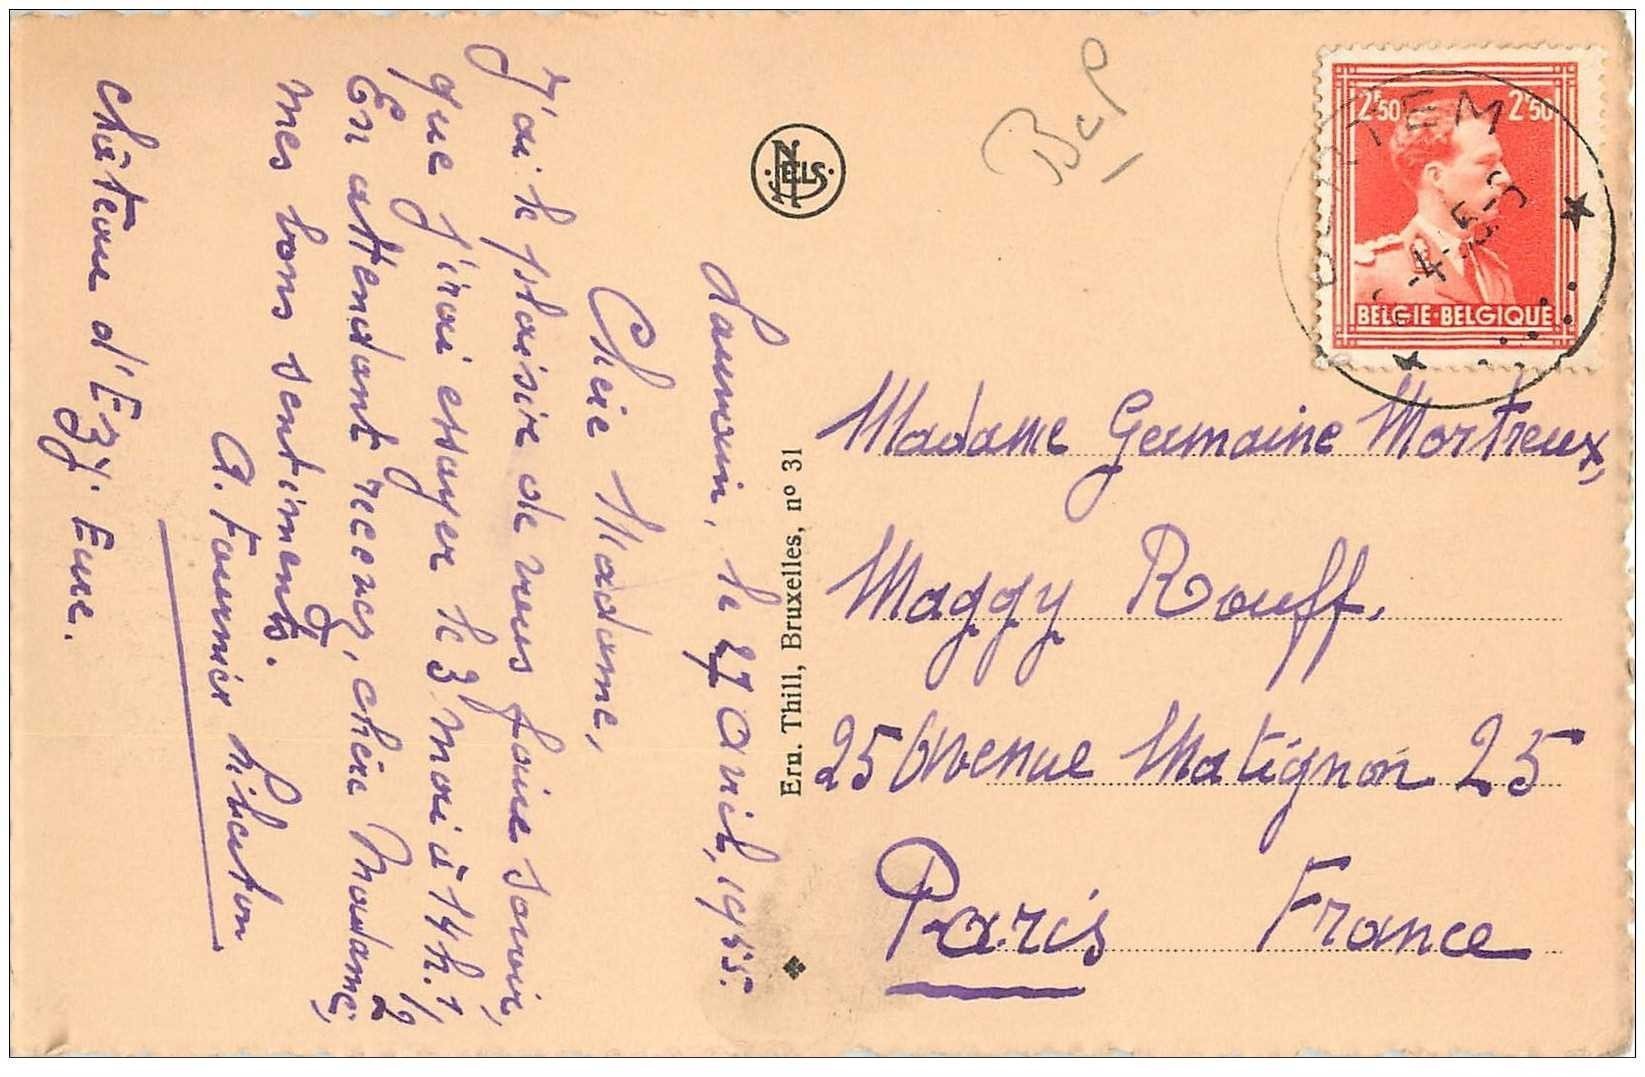 Louvain, le 27 Avril, 1955.
Chère Madame,
J'ai le plaisir de vous faire savoir,
que j'irai essayer le 3 mai à 14 h. 1/2
En attendant recevez, chère Madame,
mes bons sentiments.
A. Fournier
Château d'Ezy. Eure.
NELS
Ern. Thill, Bruxelles, nº 31
BcP
2F50 2F50
BELGIE-BELGIQUE
Madame Germaine Mortreux,
Maggy Rouff.
25 Avenue Matignon 25
Paris France